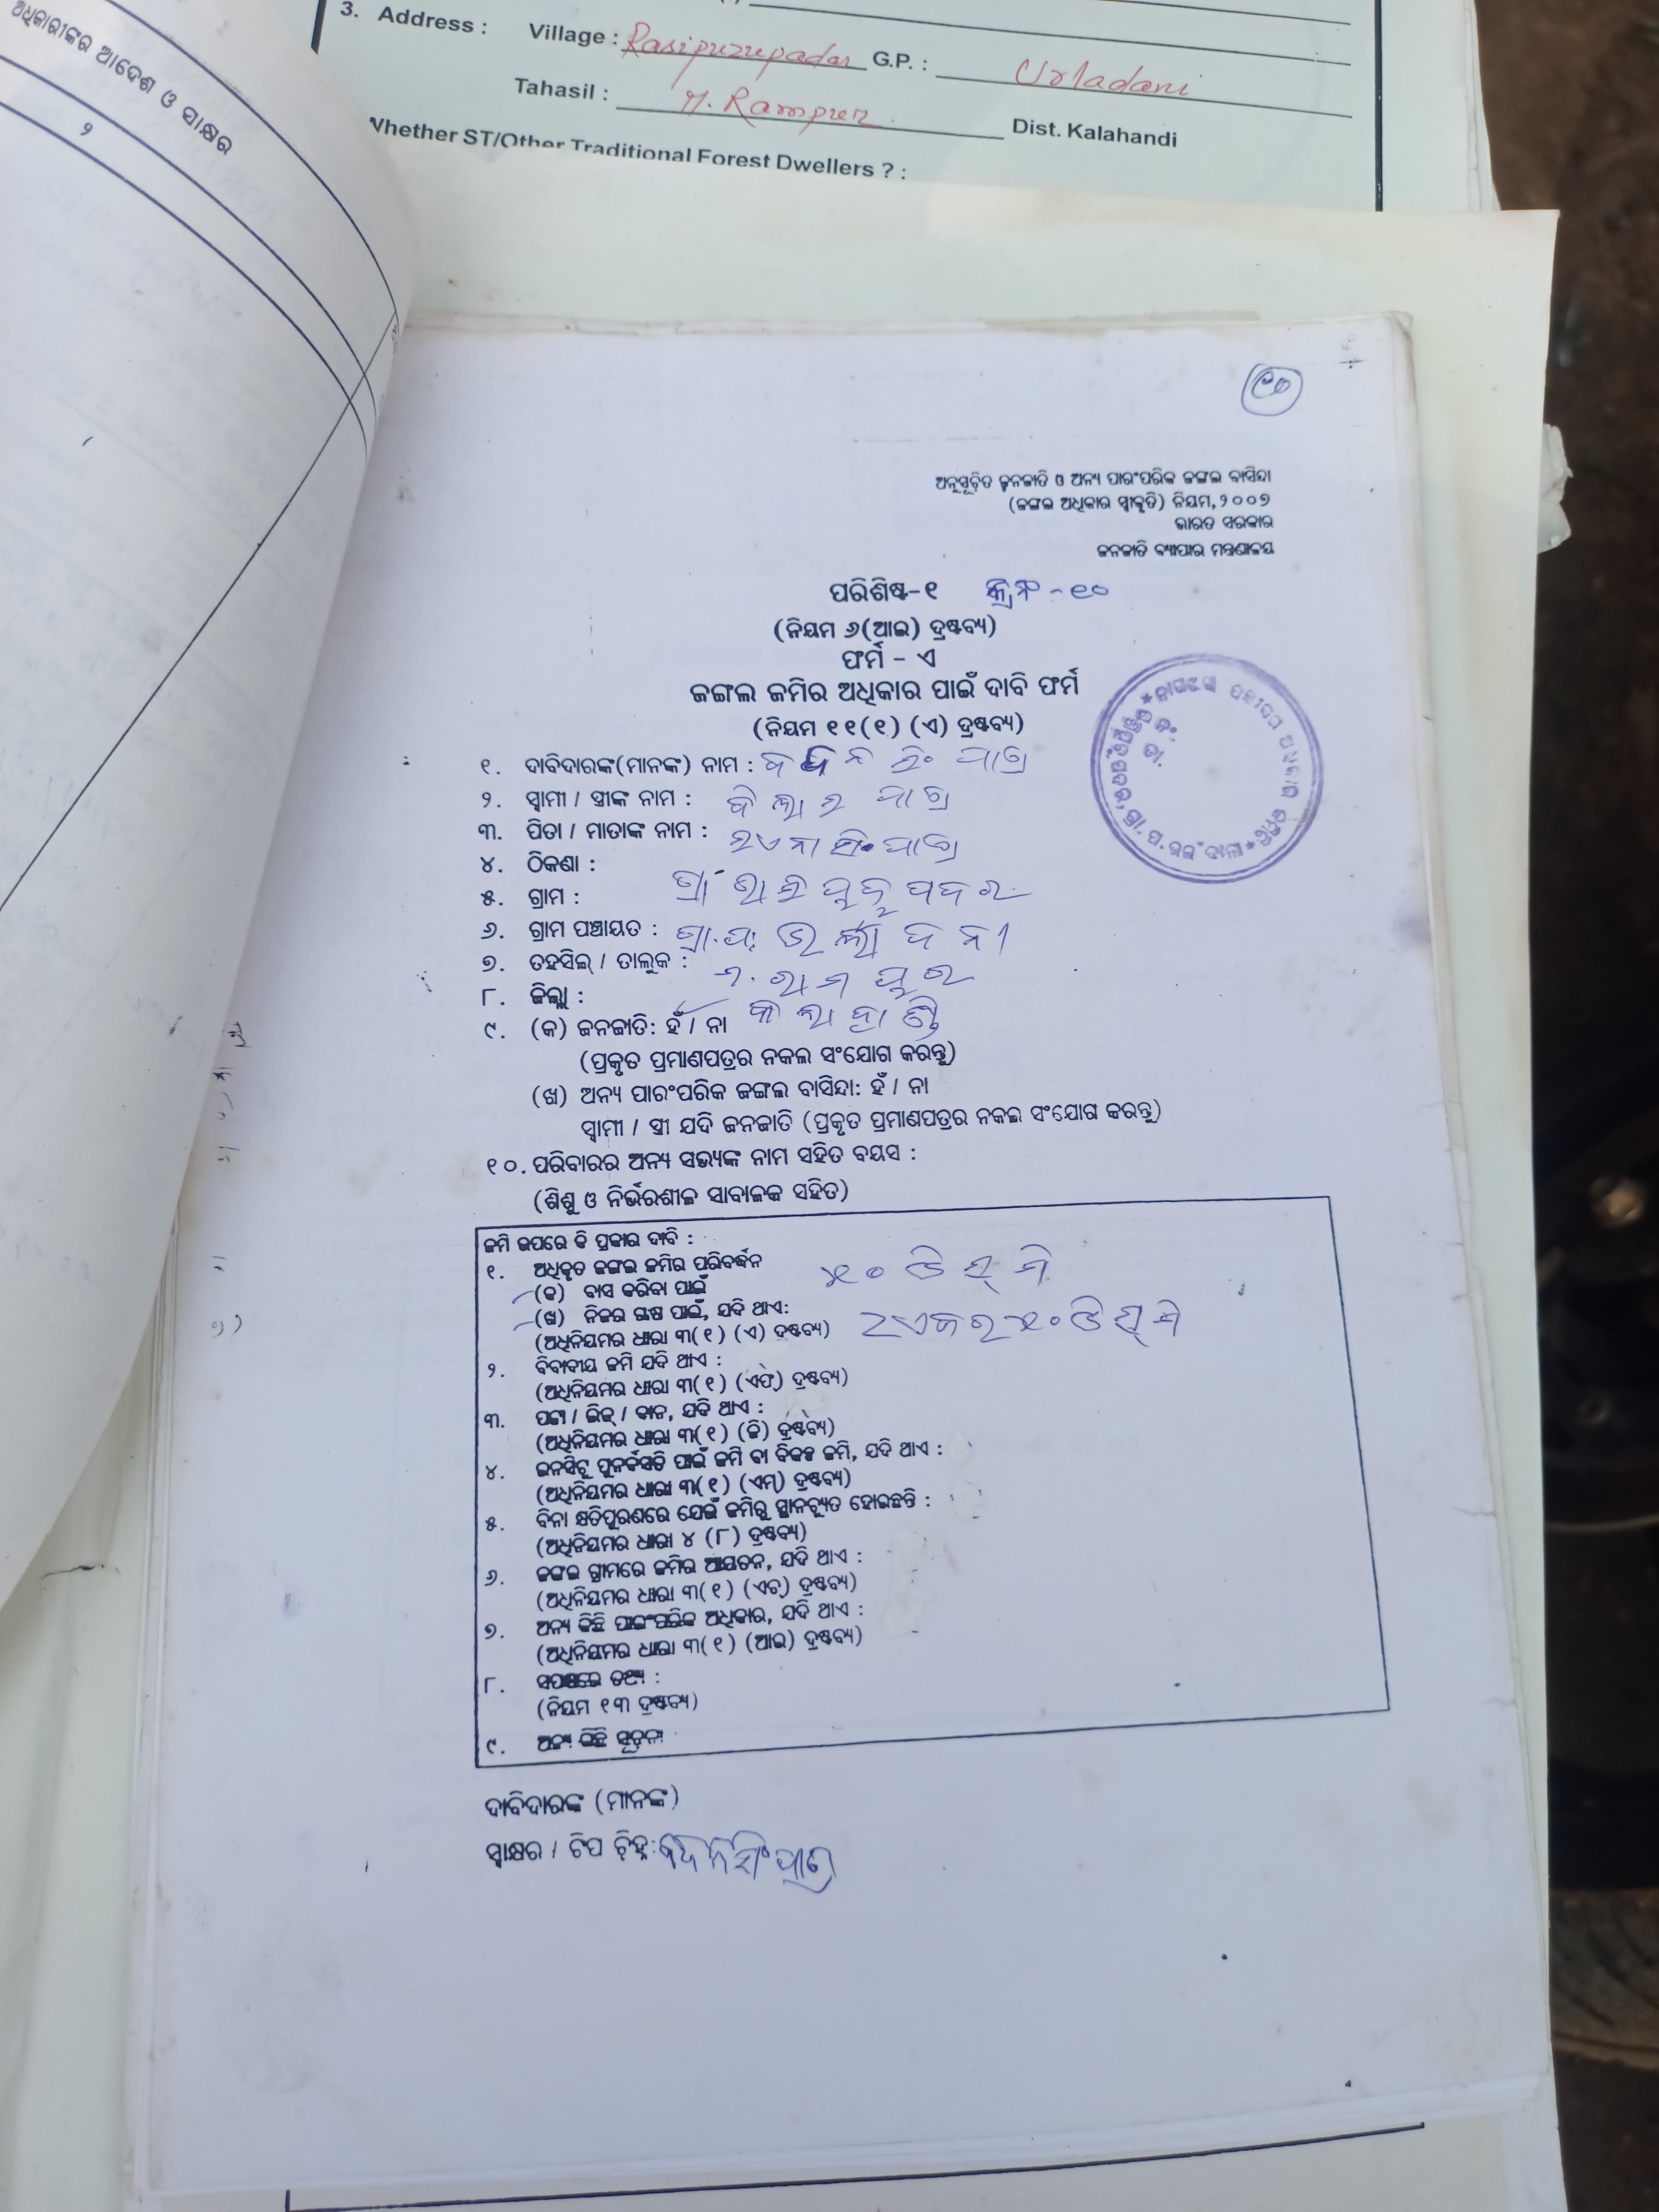 3. Address : Village : Rasipuzupadar G.P. : Urladani
Tahasil : M. Rampur Dist. Kalahandi
Whether ST/Other Traditional Forest Dwellers ? :
ଅଧିକାରୀଙ୍କର ଆଦେଶ ଓ ସାକ୍ଷର
୨
ଅନୁସୂଚିତ ଜନଜାତି ଓ ଅନ୍ୟ ପାରଂପରିକ ଜଙ୍ଗଲ ବାସିନ୍ଦା
(ଜଙ୍ଗଲ ଅଧିକାର ସ୍ୱୀକୃତି) ନିୟମ, ୨୦୦୭
ଭାରତ ସରକାର
ଜନଜାତି ବ୍ୟାପାର ମନ୍ତ୍ରଣାଳୟ
ପରିଶିଷ୍ଟ-୧
(ନିୟମ ୬(ଆଇ) ଦ୍ରଷ୍ଟବ୍ୟ)
ଫର୍ମ - ଏ
ଜଙ୍ଗଲ ଜମିର ଅଧିକାର ପାଇଁ ଦାବି ଫର୍ମ
(ନିୟମ ୧୧(୧) (ଏ) ଦ୍ରଷ୍ଟବ୍ୟ)
୧. ଦାବିଦାରଙ୍କ(ମାନଙ୍କ) ନାମ : ପାତ୍ର
୨. ସ୍ୱାମୀ / ସ୍ତ୍ରୀଙ୍କ ନାମ : ପାତ୍ର
୩. ପିତା / ମାତାଙ୍କ ନାମ : ପାତ୍ର
୪. ଠିକଣା :
୫. ଗ୍ରାମ :
୬. ଗ୍ରାମ ପଞ୍ଚାୟତ : ଗ୍ରା.ପ: ଉର୍ଲାଦନୀ
୭. ତହସିଲ୍ / ତାଲୁକ : ଏ. ରାମପୁର
୮. ଜିଲ୍ଲା : କଲାହାଣ୍ଡି
୯. (କ) ଜନଜାତି: ହଁ / ନା
(ପ୍ରକୃତ ପ୍ରମାଣପତ୍ରର ନକଲ ସଂଯୋଗ କରନ୍ତୁ)
(ଖ) ଅନ୍ୟ ପାରଂପରିକ ଜଙ୍ଗଲ ବାସିନ୍ଦା: ହଁ / ନା
ସ୍ୱାମୀ / ସ୍ତ୍ରୀ ଯଦି ଜନଜାତି (ପ୍ରକୃତ ପ୍ରମାଣପତ୍ରର ନକଲ ସଂଯୋଗ କରନ୍ତୁ)
୧୦. ପରିବାରର ଅନ୍ୟ ସଭ୍ୟଙ୍କ ନାମ ସହିତ ବୟସ :
(ଶିଶୁ ଓ ନିର୍ଭରଶୀଳ ସାବାଳକ ସହିତ)
ଜମି ଉପରେ କି ପ୍ରକାର ଦାବି :
୧. ଅଧିକୃତ ଜଙ୍ଗଲ ଜମିର ପରିବର୍ଦ୍ଧନ
(କ) ବାସ କରିବା ପାଇଁ ୫୦ ଡିସ୍ମି
(ଖ) ନିଜର ଚାଷ ପାଇଁ, ଯଦି ଥାଏ: ୨ଏକର ୫୦ ଡିସ୍ମି
(ଅଧିନିୟମର ଧାରା ୩(୧) (ଏ) ଦ୍ରଷ୍ଟବ୍ୟ)
୨. ବିବାଦୀୟ ଜମି ଯଦି ଥାଏ :
(ଅଧିନିୟମର ଧାରା ୩(୧) (ଏଫ୍) ଦ୍ରଷ୍ଟବ୍ୟ)
୩. ପଟ୍ଟା / ଲିଜ୍ / ଦାନ, ଯଦି ଥାଏ :
(ଅଧିନିୟମର ଧାରା ୩(୧) (ଜି) ଦ୍ରଷ୍ଟବ୍ୟ)
୪. ଇନସିଟୁ ପୁନର୍ବସତି ପାଇଁ ଜମି ବା ବିକଳ୍ପ ଜମି, ଯଦି ଥାଏ :
(ଅଧିନିୟମର ଧାରା ୩(୧) (ଏମ୍) ଦ୍ରଷ୍ଟବ୍ୟ)
୫. ବିନା କ୍ଷତିପୂରଣରେ ଯେଉଁ ଜମିରୁ ସ୍ଥାନଚ୍ୟୁତ ହୋଇଛନ୍ତି :
(ଅଧିନିୟମର ଧାରା ୪ (୮) ଦ୍ରଷ୍ଟବ୍ୟ)
୬. ଜଙ୍ଗଲ ଗ୍ରାମରେ ଜମିର ଆୟତନ, ଯଦି ଥାଏ :
(ଅଧିନିୟମର ଧାରା ୩(୧) (ଏଚ୍) ଦ୍ରଷ୍ଟବ୍ୟ)
୭. ଅନ୍ୟ କିଛି ପାରଂପରିକ ଅଧିକାର, ଯଦି ଥାଏ :
(ଅଧିନିୟମର ଧାରା ୩(୧) (ଆଇ) ଦ୍ରଷ୍ଟବ୍ୟ)
୮. ସପକ୍ଷରେ ତଥ୍ୟ :
(ନିୟମ ୧୩ ଦ୍ରଷ୍ଟବ୍ୟ)
୯. ଅନ୍ୟ କିଛି ସୂଚନା
ଦାବିଦାରଙ୍କ (ମାନଙ୍କ)
ସ୍ୱାକ୍ଷର / ଟିପ ଚିହ୍ନ: